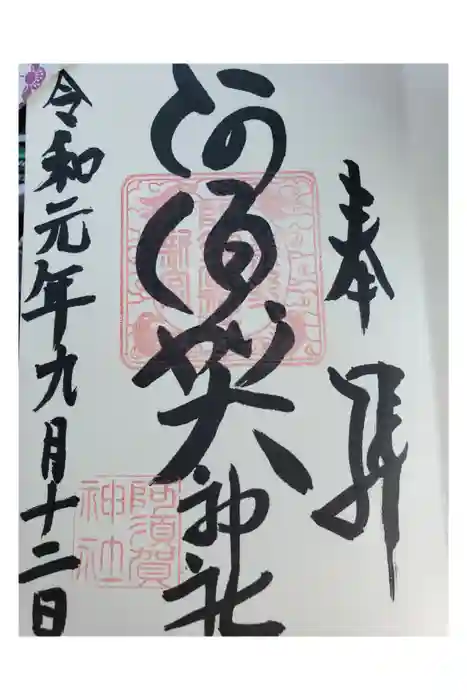 奉拝
阿須賀神社
令和元年九月十二日
阿須賀
神社